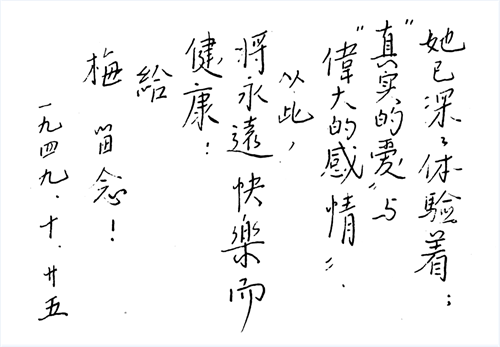 她已深々体驗着；
"真实的爱"与
"偉大的感情"．
以此，
将永遠快樂而
健康！
給
梅 留念！
一九四九．十．廿五